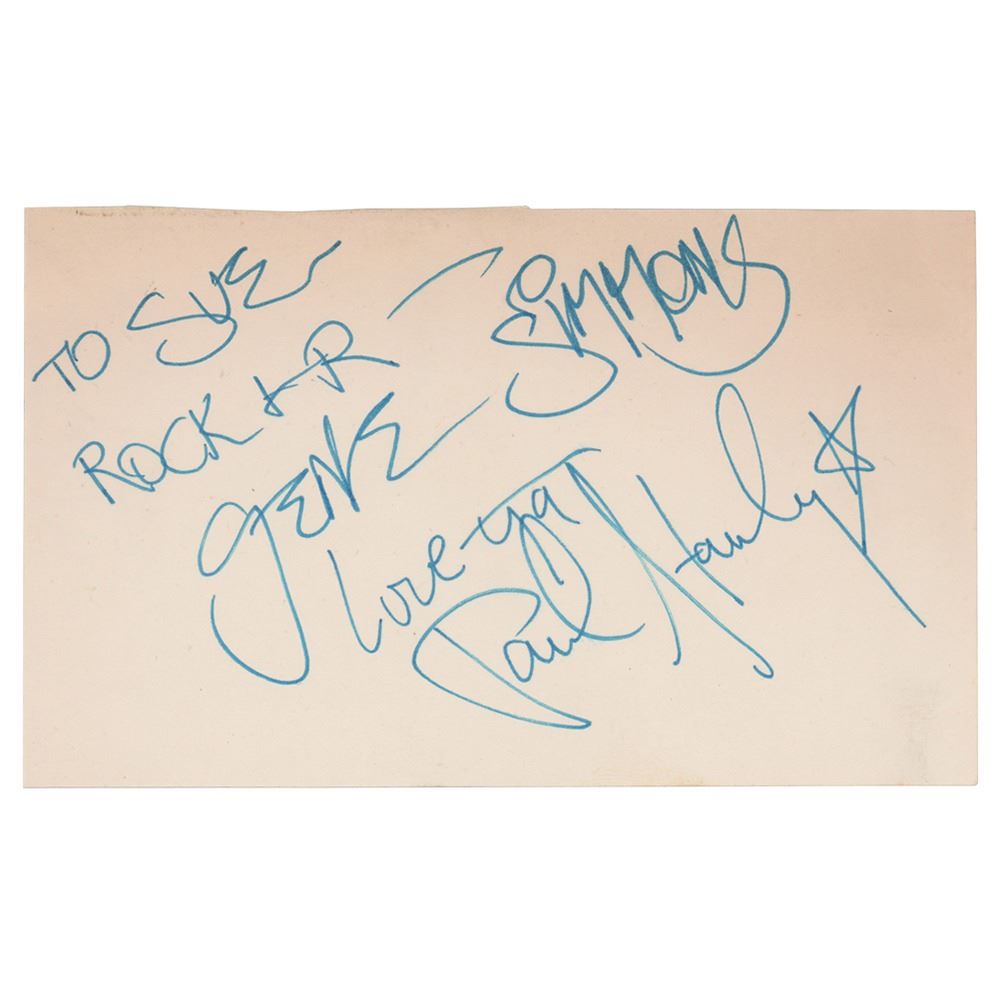 TO SUE
ROCK + R
GENE SIMMONS
Love ya
Paul Stanley